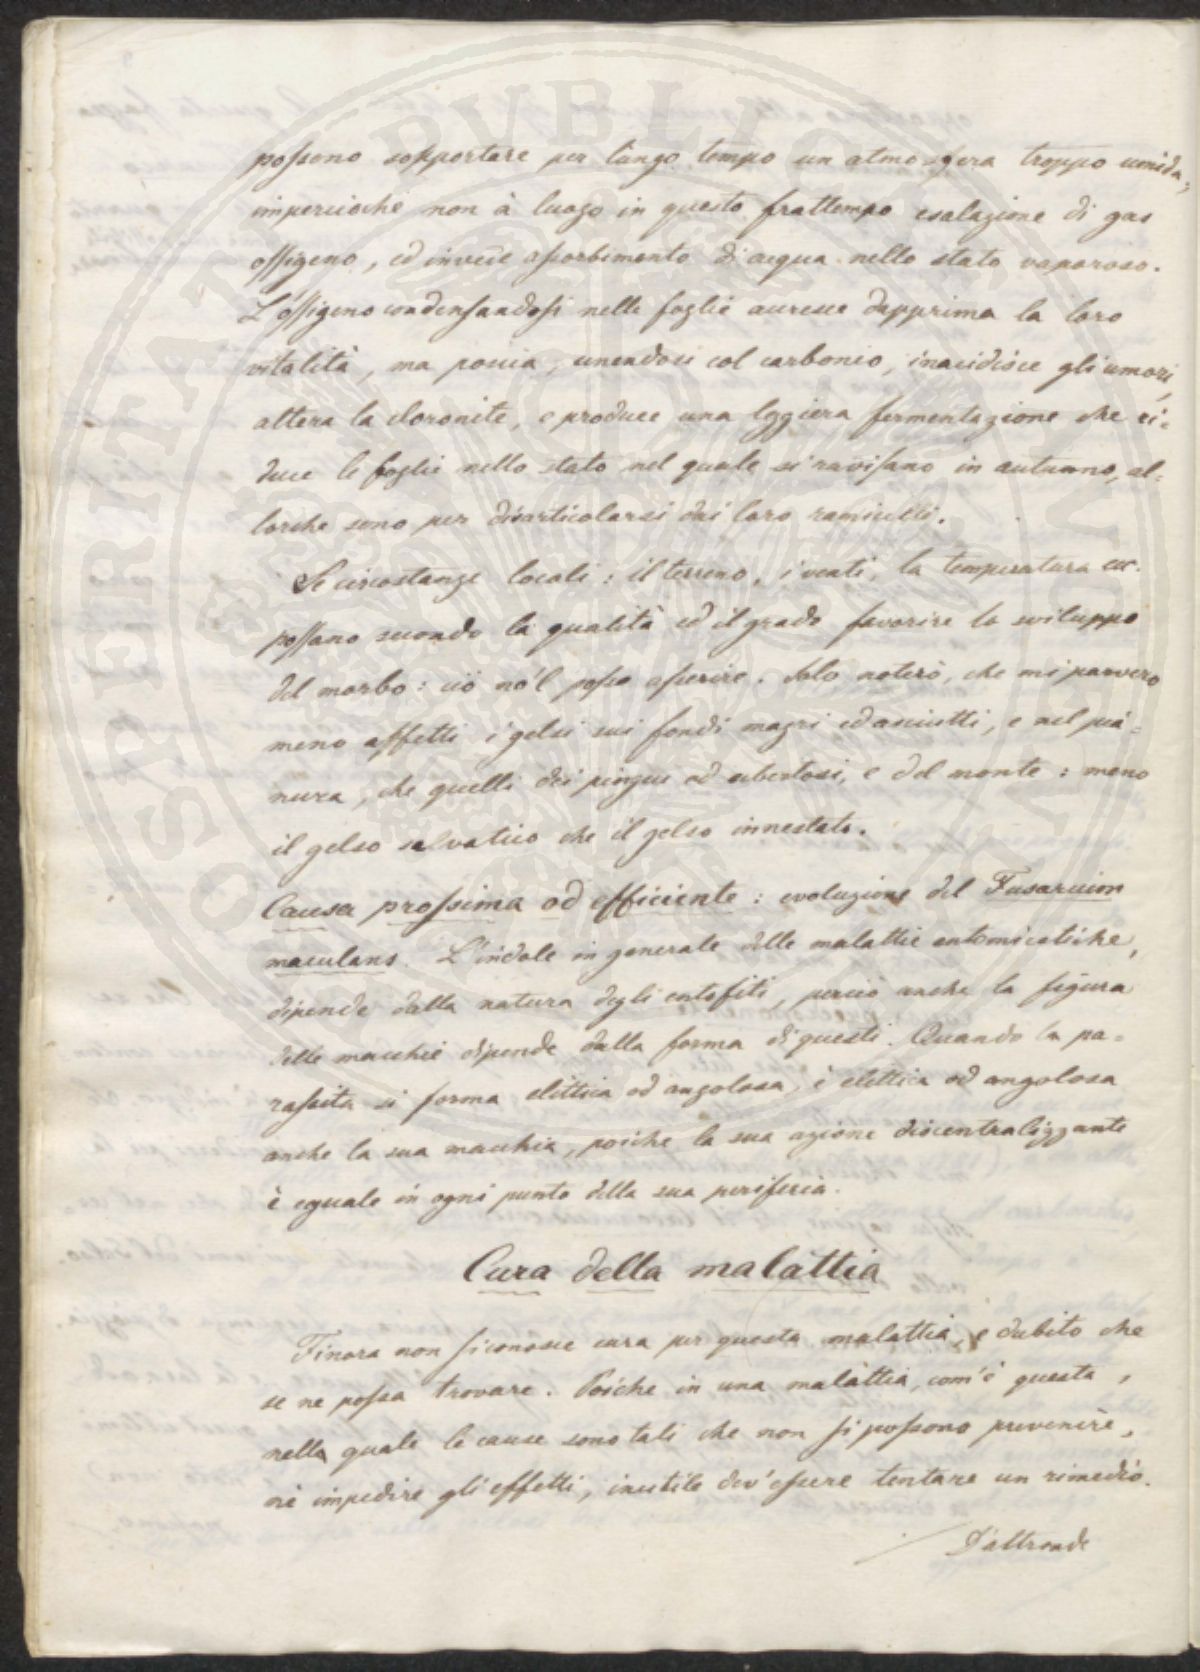 possono sopportare per lungo tempo un atmosfera troppo umida;
imperciochè non à luogo in questo frattempo esalazione di gas
ossigeno, ed invece assorbimento di acqua nello stato vaporoso.
L'ossigeno condensandosi nelle foglie accresce dapprima la loro
vitalità, ma poscia, unendosi col carbonio, inacidisce gli umori,
altera la cloronite, e produce una leggiera fermentazione che ri-
duce le foglie nello stato nel quale si ravisano in autunno, al-
lorche sono per disarticolarsi dai loro ramicelli.
Se circostanze locali: il terreno, i venti, la temperatura ecc.
possano secondo la qualità ed il grado favorire lo sviluppo
del morbo: ciò no'l posso asserire. Solo noterò, che mi parvero
meno affetti i gelsi sui fondi magri ed asciutti, e nel pia-
nura, che quelli dei pingui ed ubertosi, e del monte: meno
il gelso salvatico che il gelso innestato.
Causa prossima od efficiente: evoluzione del Fusarium
maculans. L'indole in generale delle malattie entomicetiche,
dipende dalla natura degli entofiti, perciò anche la figura
delle macchie dipende dalla forma di questi. Quando la pa-
rassita si forma elittica od angolosa, è elittica od angolosa
anche la sua macchia, poichè la sua azione discentralizzante
è eguale in ogni punto della sua periferia.
Cura della malattia
Finora non si conosce cura per questa malattia, e dubito che
se ne possa trovare. Poichè in una malattia, com'è questa,
nella quale le cause sono tali che non si possono prevenire,
nè impedire gli effetti, inutile dev'essere tentare un rimedio.
D'altronde
SPERITATE PUBLICE